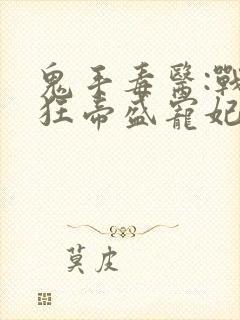 鬼手毒醫:戰
狂帝盛寵妃
莫皮